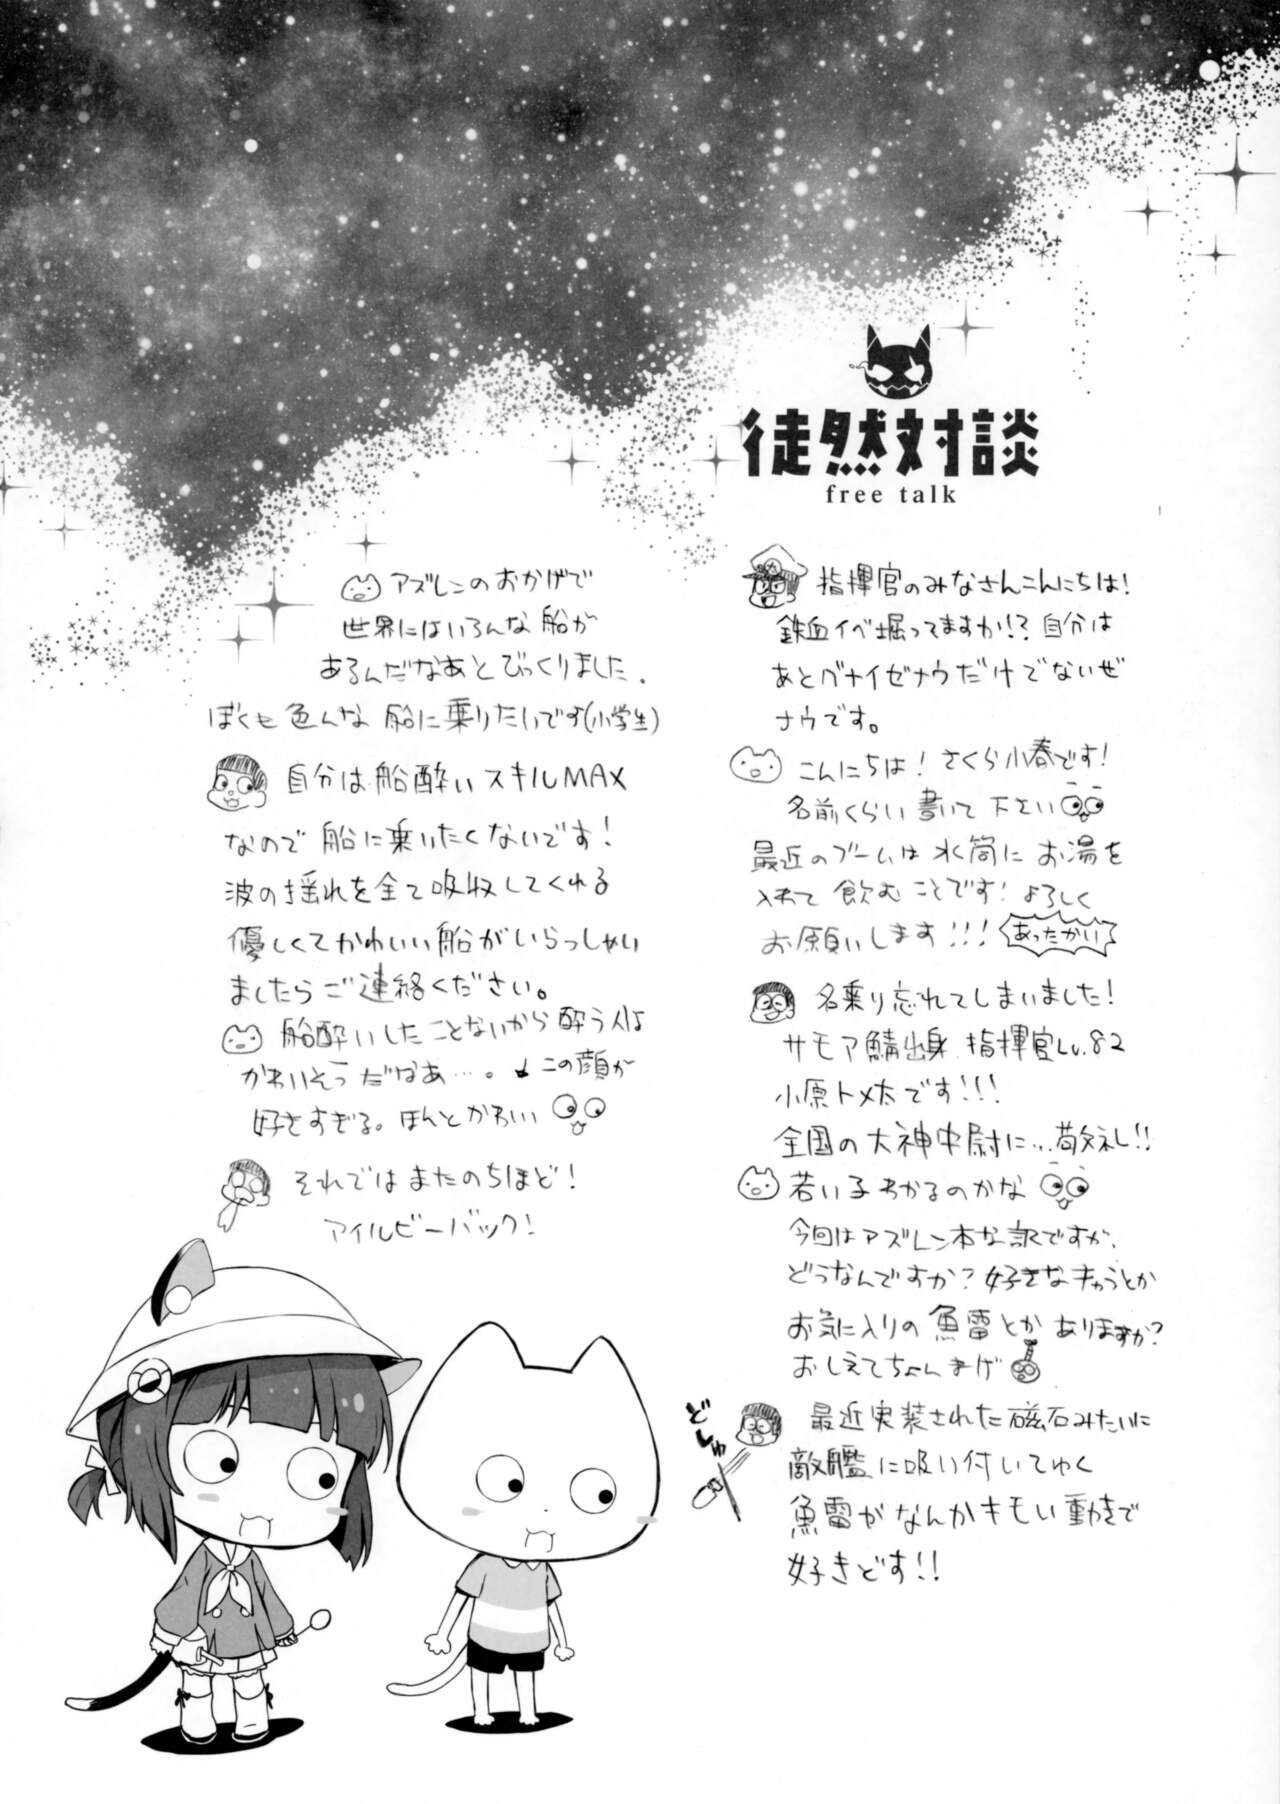 徒然対談
free talk
指揮官のみなさんこんにちは!
鉄血イベ堀ってますか!?自分は
あとグナイゼナウだけでないぜ
ナウです。
こんにちは!さくら小春です!
名前くらい書いて下さい
最近のブームは水筒にお湯を
入れて飲むことです!よろしく
お願いします!!!
あったかい
名乗り忘れてしまいました!
サモア鯖出身指揮官Lv.82
小原トメ太です!!!
全国の大神中尉に…敬礼!!
若い子わかるのかな
今回はアズレン本な訳ですが、
どうなんですか?好きなキャラとか
お気に入りの魚雷とかありますか?
おしえてちょんまげ
どしゅっ
最近実装された磁石みたいに
敵艦に吸い付いてゆく
魚雷がなんかキモい動きで
好きどす!!
アズレンのおかげで
世界にはいろんな船が
あるんだなあとびっくりしました。
ぼくも色んな船に乗りたいです(小学生)
自分は船酔いスキルMAX
なので船に乗りたくないです!
波の揺れを全て吸収してくれる
優しくてかわいい船がいらっしゃい
ましたらご連絡ください。
船酔いしたことないから酔う人は
かわいそうだなあ…。この顔が
好きすぎる。ほんとかわいい
それではまたのちほど!
アイルビーバック!